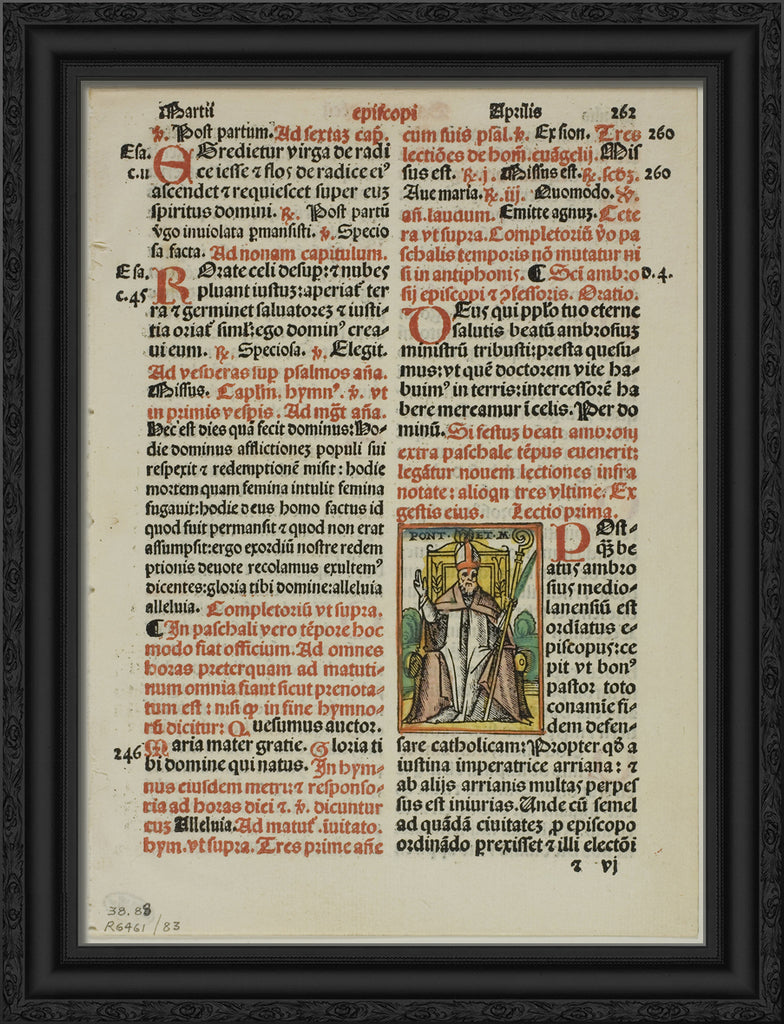 Martii episcopi Aprilis 262
℣. Post partum. Ad sextaz cap̃.
Esa. c.11 EGredietur virga de radi
ce iesse ⁊ flos de radice ei⁹
ascendet ⁊ requiescet super euz
spiritus domini. ℞. Post partũ
v̾go inuiolata p̱mansisti. ℣. Specio
sa facta. Ad nonam capitulum.
Esa. c.45 ROrate celi desup̱: ⁊ nubes
pluant iustuz: aperiat᷑ ter
ra ⁊ germinet saluatorez ⁊ iusti-
tia oriat᷑ siml̃: ego domin⁹ crea-
ui eum. ℞. Speciosa. ℣. Elegit.
Ad vesperas sup̱ psalmos añа.
Missus. Caplm̃. hymn⁹. ℣. vt
in primis vesp̱is. Ad mg̃t añа.
Hec est dies quã fecit dominus: Ho-
die dominus afflictionez populi sui
respexit ⁊ redemptionẽ misit: hodie
mortem quam femina intulit femina
fugauit: hodie deus homo factus id
quod fuit permansit ⁊ quod non erat
assumpsit: ergo exordiũ nostre redem
ptionis deuote recolamus exultem⁹
dicentes: gloria tibi domine: alleluia
alleluia. Completoriũ vt supra.
¶ In paschali vero tẽpore hoc
modo fiat officium. Ad omnes
horas preterquam ad matuti-
num omnia fiant sicut prenota-
tum est: nisi ꝙ in fine hymno-
rũ dicitur: Quesumus auctor.
246 Maria mater gratie. Gloria ti
bi domine qui natus. In hym-
nus eiusdem metri: ⁊ responso-
ria ad horas diei ⁊ ℣. dicuntur
cuz Alleluia. Ad matut᷑. inuitato.
hym. vt supra. Tres prime añe
cum suis psal. ℣. Ex sion. Tres 260
lectiões de hom̃. euãgelij. Mis
sus est. ℞. j. Missus est. ℞. scðz. 260
Aue maria. ℞. iij. Quomodo. ℣.
añ. laudum. Emitte agnuz. Cete
ra vt supra. Completoriũ v̾o pa
schalis temporis nõ mutatur ni
si in antiphonis. ¶ Sci ambro D.4.
sij episcopi ⁊ ↄfessoris. Oratio.
DEus qui pp̃lo tuo eterne
salutis beatũ ambrosiuz
ministrũ tribusti: presta quesu-
mus: vt quẽ doctorem vite ha-
buim⁹ in terris: intercessorẽ ha
bere mereamur ĩ celis. Per do
minũ. Si festuz beati ambrosij
extra paschale tẽpus euenerit:
legãtur nouem lectiones infra
notate: alioqn tres vltime. Ex
gestis eius. Lectio prima.
PONT. ET. M
POst-
q̃z be
atus ambro
sius medio-
lanensiũ est
ordĩatus e-
piscopus: ce
pit vt bon⁹
pastor toto
conamie fi-
dem defen-
sare catholicam: Propter qð a
iustina imperatrice arriana: ⁊
ab alijs arrianis multas perpes
sus est iniurias. Unde cũ semel
ad quãdã ciuitatez ꝓ episcopo
ordinãdo ꝑrexisset ⁊ illi electõi
⁊ vj
38.88
R6461/83